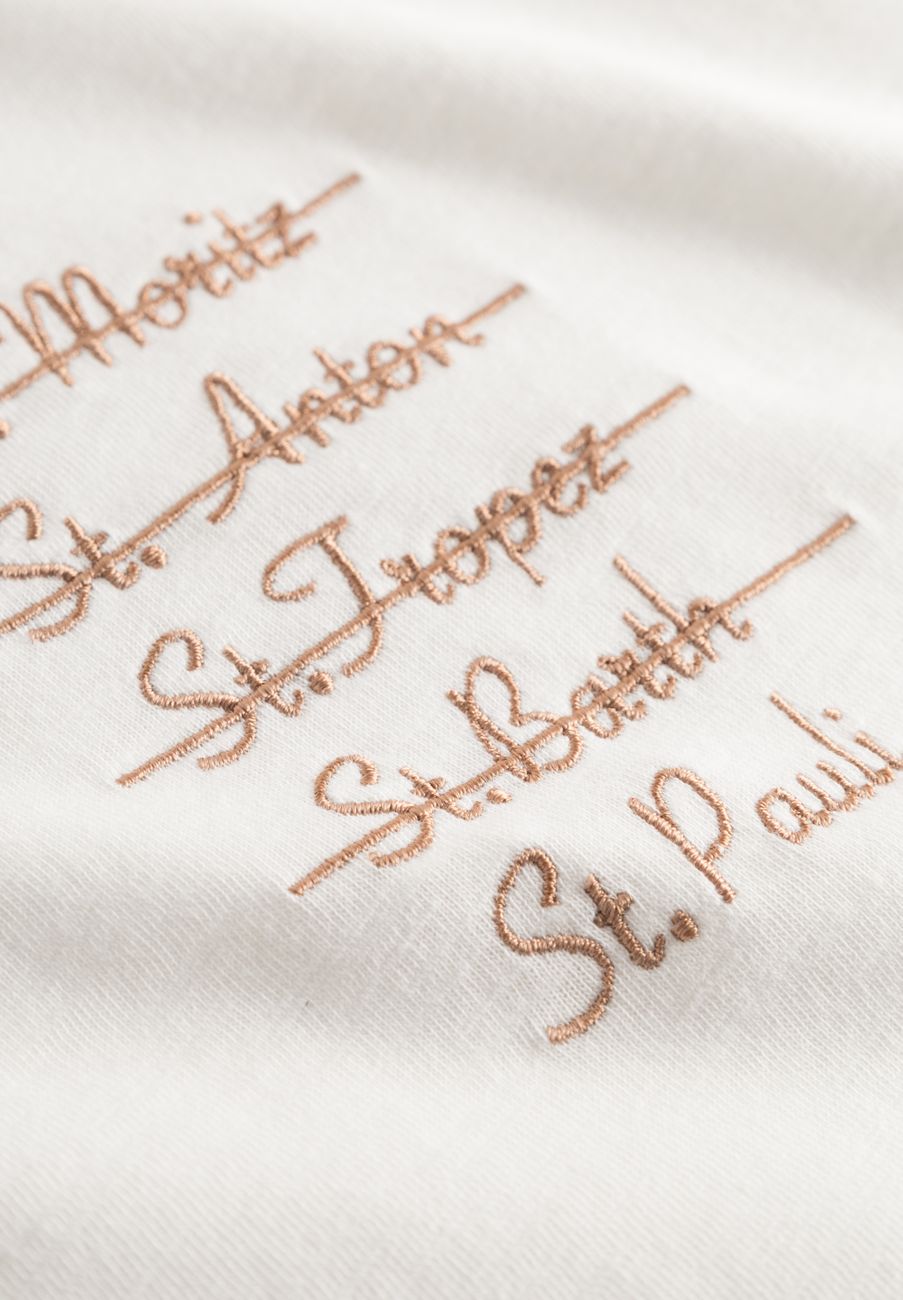 Moritz
St. Anton
St. Tropez
St. Barth
St. Pauli